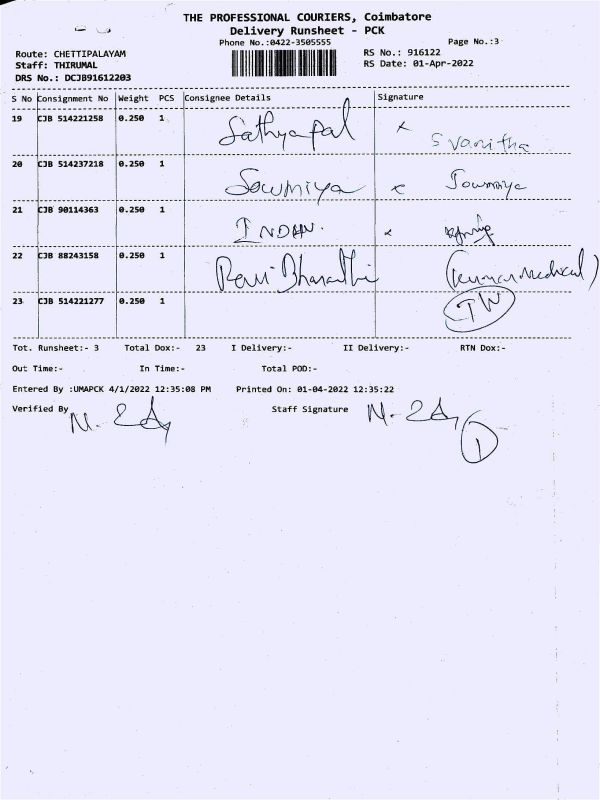 THE PROFESSIONAL COURIERS, Coimbatore
Delivery Runsheet - PCK
Phone No.:0422-3505555 Page No.:3
Route: CHETTIPALAYAM RS No.: 916122
Staff: THIRUMAL RS Date: 01-Apr-2022
DRS No.: DCJB91612203
S No Consignment No Weight PCS Consignee Details Signature
19 CJB 514221258 0.250 1 Sathyapal x S Vanitha
20 CJB 514237218 0.250 1 Sowmiya x Sowmiya
21 CJB 90114363 0.250 1 x
22 CJB 88243158 0.250 1 Ravi Bharathi (Kumar Medical)
23 CJB 514221277 0.250 1 IW
Tot. Runsheet:- 3 Total Dox:- 23 I Delivery:- II Delivery:- RTN Dox:-
Out Time:- In Time:- Total POD:-
Entered By :UMAPCK 4/1/2022 12:35:08 PM Printed On: 01-04-2022 12:35:22
Verified By Staff Signature